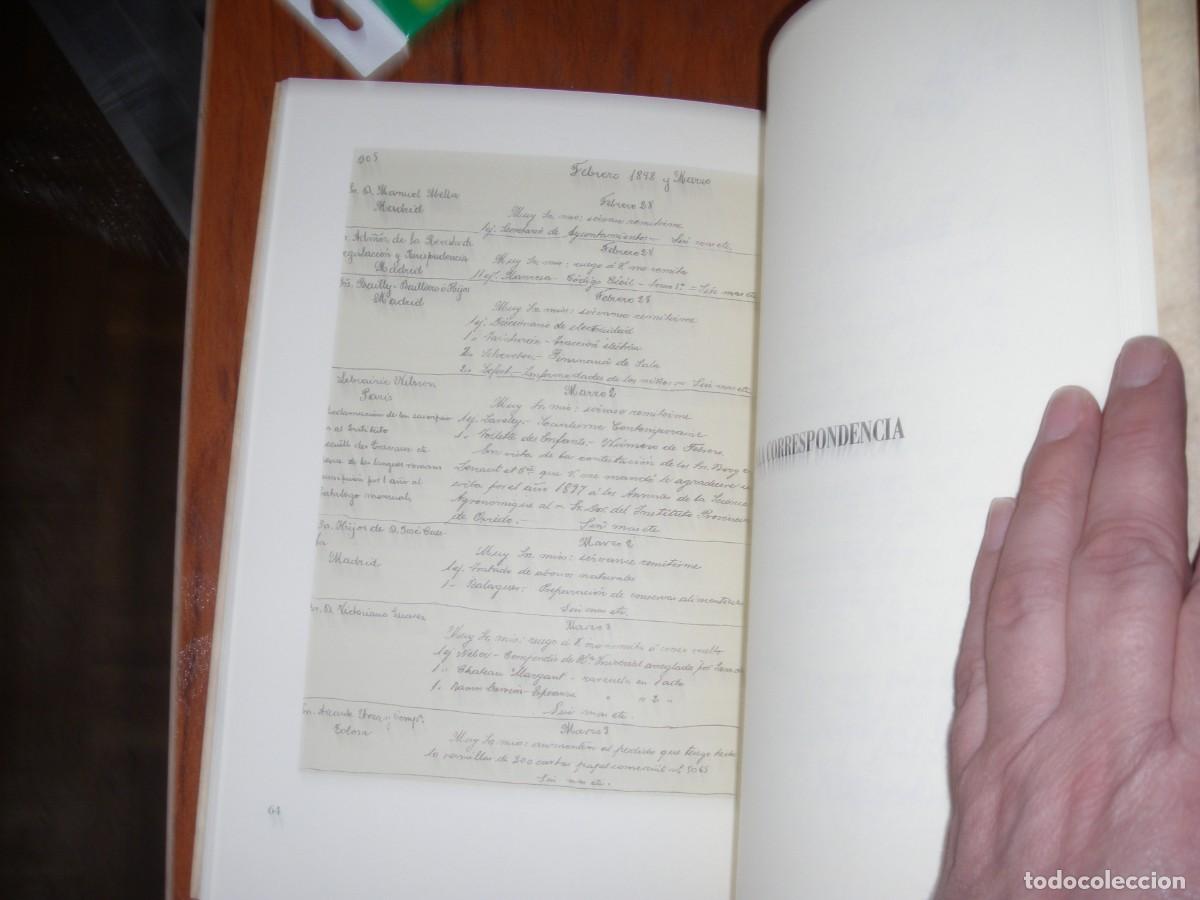 Febrero 1898 y Marzo
Sr. D. Manuel Abella
Madrid
Febrero 28
Muy Sr. mio: sirvase remitirme
1 ej. Secretario de Ayuntamientos Sin mas etc.
de la Revista de
Legislación y Jurispudencia
Madrid
Febrero 28
Muy Sr. mio: ruego á V. me remita
1 ej. Manresa - Código Civil - tomo 1º = Sin mas etc
Bailly-Bailliere é Hijos
Madrid
Febrero 28
Muy Sr. mio: sirvanse remitirme
1 ej. Diccionario de electricidad
tracción eléctrica
2 Schreber - Gimnasia de Sala
2 Enfermedades de los niños - Sin mas etc
Librairie Nilsson
Paris
Marzo 2
Muy Sr. mio: sirvase remitirme
1 ej. Laveley - Socialisme Contemporaine
1 Toilette des Enfants - Número de Febrero
En vista de la contestación de los Sr.
que V. me mandó le agradeceré
por el año 1897 á los Annales de la Science
Agronomique al Sr. Dor. del Instituto Provincial
de Oviedo. Sin mas etc
Reclamación de
Instituto
Travaux
langues romanes
por 1 año al
Catálogo mensual
Hijos de D. José Cuesta
Madrid
Marzo 2
Muy Sr. mio: sirvanse remitirme
1 ej. Tratado de abonos naturales
1 - Balaguer: Preparación de conservas alimenticias
Sin mas etc.
Sr. D. Victoriano Suarez
Marzo 3
Muy Sr. mio: ruego á V. me remita á correo vuelto
1 ej Compendio de Hª Universal arreglada por
1 Chateau Margaux - zarzuela en 1 acto
1. Ramos Carrión
Sin mas etc.
Tolosa
Marzo 3
Muy Sr. mio: aumenten al pedido que tengo hecho
de 200 cartas papel comercial nº 5065
Sin mas etc.
64
LA CORRESPONDENCIA
todocoleccion